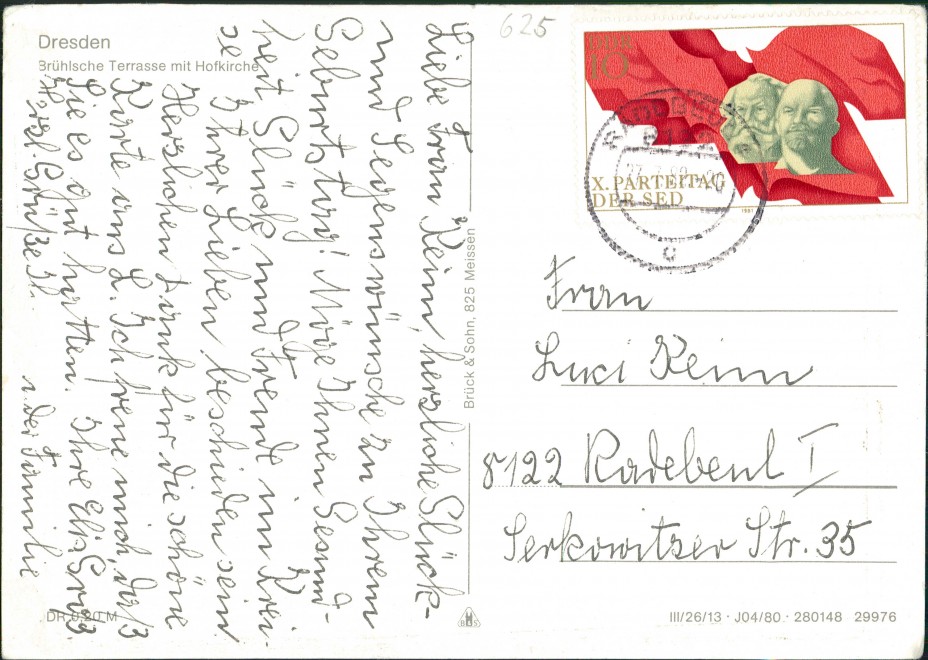 Dresden
Brühlsche Terrasse mit Hofkirche
625
DDR
10
X. PARTEITAG
DER SED
1981
Liebe Frau Keim, herzliche Glück-
und Segenswünsche zu Ihrem
Geburtstag! Möge Ihnen Gesund-
heit Glück und Freude im Krei-
se Ihrer Lieben beschieden sein.
Herzlichen Dank für die schöne
Karte aus L. Ich freue mich, daß
Sie es gut hatten. Ihre Elis.
Herzl. Grüße
u. der Familie
Brück & Sohn, 825 Meissen
Frau
Luci Keim
8122 Radebeul I
Serkowitzer Str. 35
DR 0,20 M
III/26/13 · J04/80 · 280148 29976